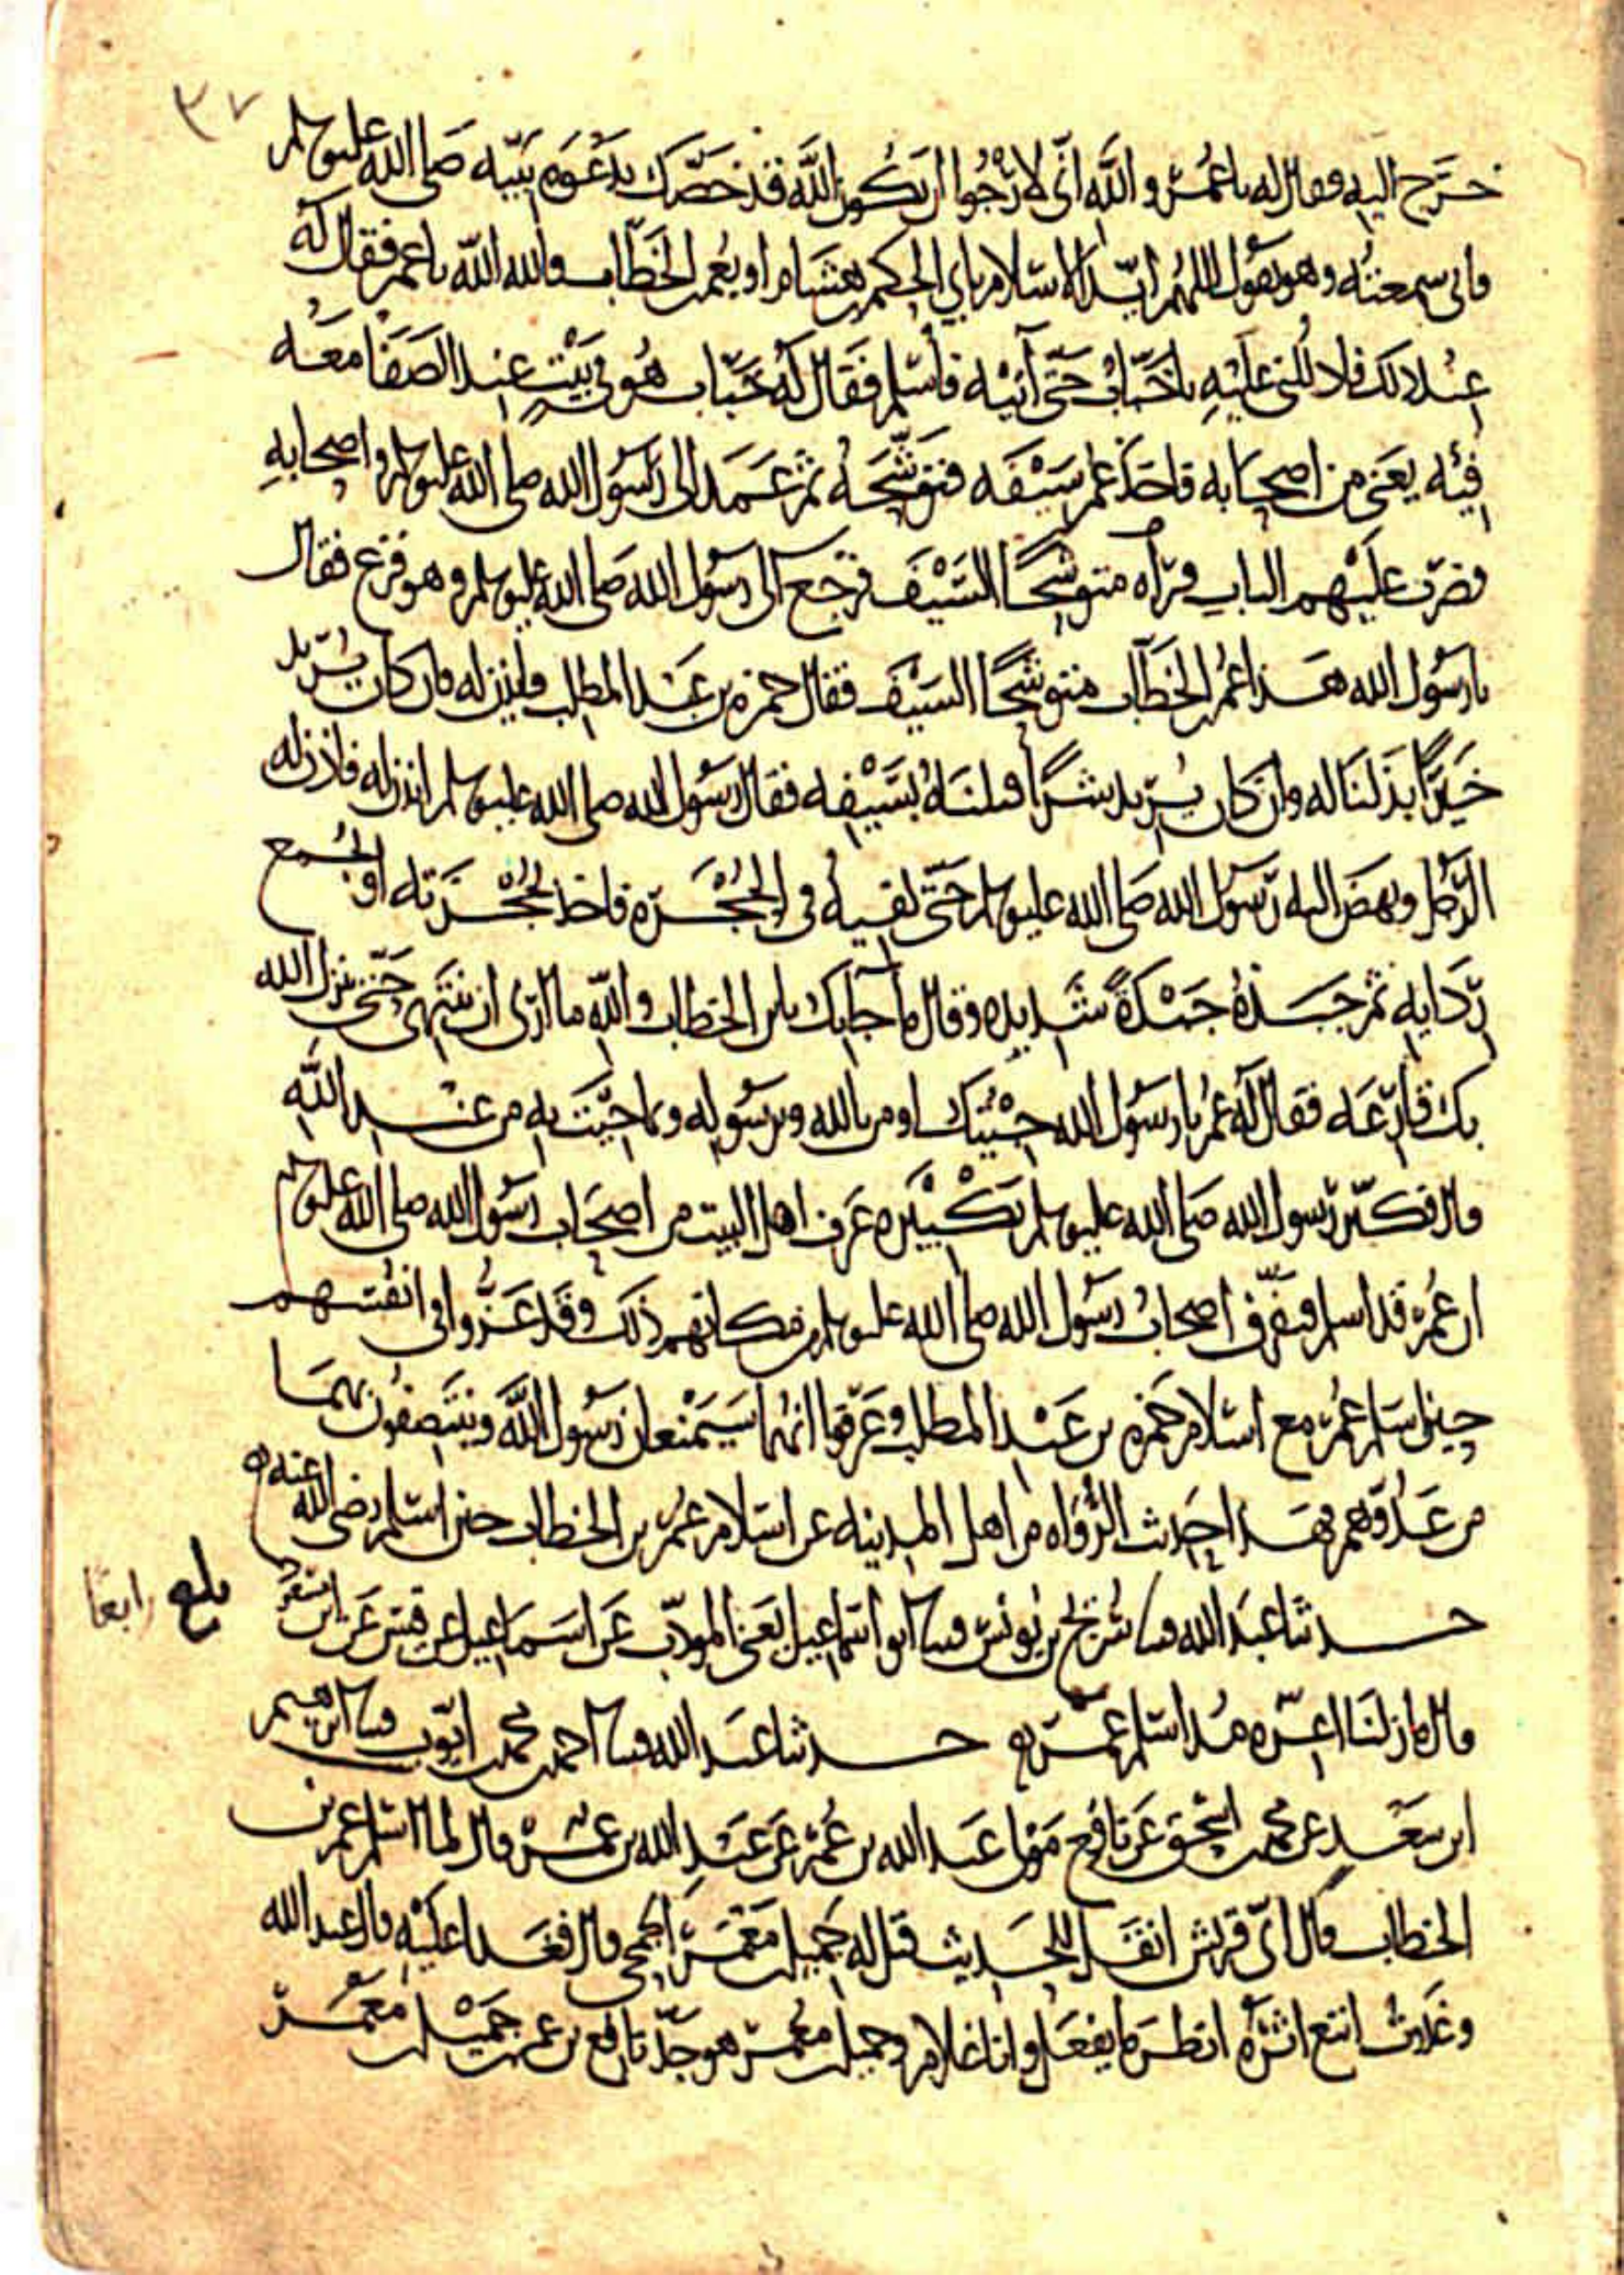 ٣٧
خرج اليه فقال له يا عمر والله انى لارجوا ان يكون الله قد خصك بدعوه نبيه صلى الله عليه وسلم
فانى سمعته وهو يقول اللهم ايد الاسلام بابي الحكم بن هشام او بعمر بن الخطاب فالله الله يا عمر فقال له
عند ذلك فادللنى عليه يا خباب حتى آتيه فأسلم فقال له خباب هو في بيت عند الصفا معه
فئه يعنى من اصحابه فاخذ عمر سيفه فتوشحه ثم عمد الى رسول الله صلى الله عليه وسلم واصحابه
فضرب عليهم الباب فرآه متوشحا السيف فرجع الى رسول الله صلى الله عليه وسلم وهو فزع فقال
يا رسول الله هذا عمر بن الخطاب متوشحا السيف فقال حمزه بن عبد المطلب فأذن له فان كان يريد
خيرا بذلناله وان كان يريد شرا قتلناه بسيفه فقال رسول الله صلى الله عليه وسلم ائذن له فاذن له
الرجل ونهض اليه رسول الله صلى الله عليه وسلم حتى لقيه فى الحجره فاخذ بحجزته او بجمع
ردايه ثم جبذه جبذة شديده وقال ما جا بك يا بن الخطاب والله ما ارى ان تنتهى حتى ينزل الله
بك قارعه فقال له عمر يا رسول الله جيتك اومن بالله وبرسوله وبما جيت به من عند الله
قال فكبر رسول الله صلى الله عليه وسلم تكبيره عرف اهل البيت من اصحاب رسول الله صلى الله عليه وسلم
ان عمر قد اسلم فتفرق اصحاب رسول الله صلى الله عليه وسلم من مكانهم ذلك وقد عزوا فى انفسهم
حين اسلم عمر مع اسلام حمزه بن عبد المطلب وعرفوا انهما سيمنعان رسول الله وينتصفون بهما
من عدوهم فهذا حديث الرواه من اهل المدينه عن اسلام عمر بن الخطاب حين اسلم رضى الله عنه
حدثنا عبد الله قثنا سريج بن يونس قثنا ابو اسماعيل يعنى المودب عن اسماعيل عن قيس عن ابن مسعود
بلغ رابعا
قال ما زلنا اعزه منذ اسلم عمر حدثنا عبد الله قثنا احمد بن محمد بن ايوب قثنا ابرهيم
ابن سعد عن محمد بن اسحق عن نافع مولى عبد الله بن عمر عن عبد الله بن عمر قال لما اسلم عمر بن
الخطاب قال اى قريش انقل للحديث قيل له جميل بن معمر الجمحى قال فغدا عليه قال عبد الله
وغدوت اتبع اثره انظر ما يفعل وانا غلام وجميل بن معمر هو جد نافع بن عمر بن جميل بن معمر